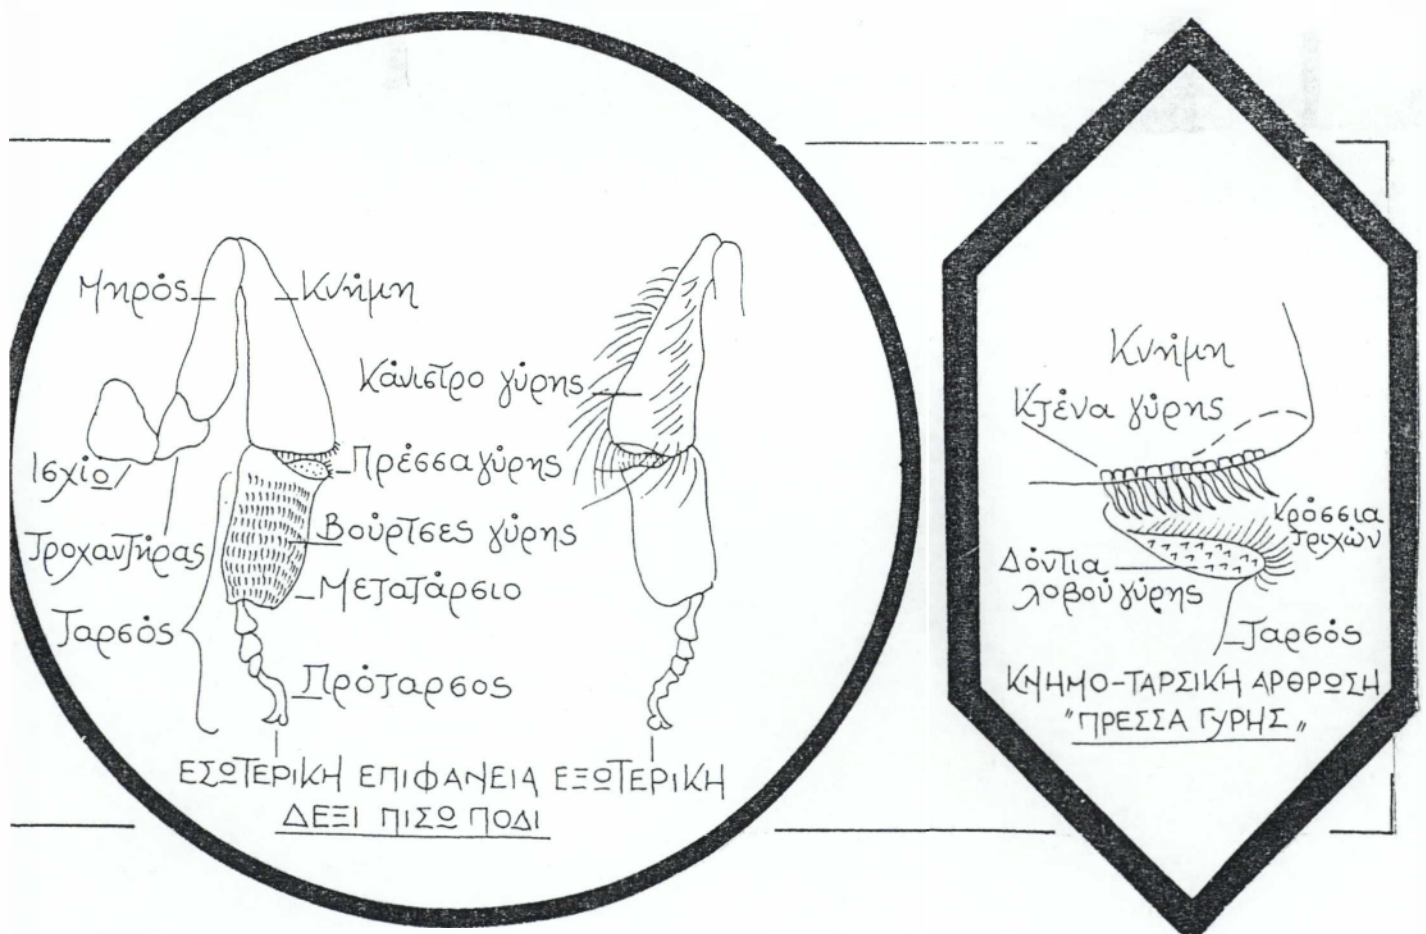 Μηρός
Κνήμη
Κάνιστρο γύρης
Ισχίο
Πρέσσα γύρης
Τροχαντήρας
Βούρτσες γύρης
Μετατάρσιο
Ταρσός
Πρόταρσος
ΕΣΩΤΕΡΙΚΗ ΕΠΙΦΑΝΕΙΑ ΕΞΩΤΕΡΙΚΗ
ΔΕΞΙ ΠΙΣΩ ΠΟΔΙ
Κνήμη
Κτένα γύρης
Κρόσσια
τριχών
Δόντια
λοβού γύρης
Ταρσός
ΚΝΗΜΟ-ΤΑΡΣΙΚΗ ΑΡΘΡΩΣΗ
"ΠΡΕΣΣΑ ΓΥΡΗΣ"